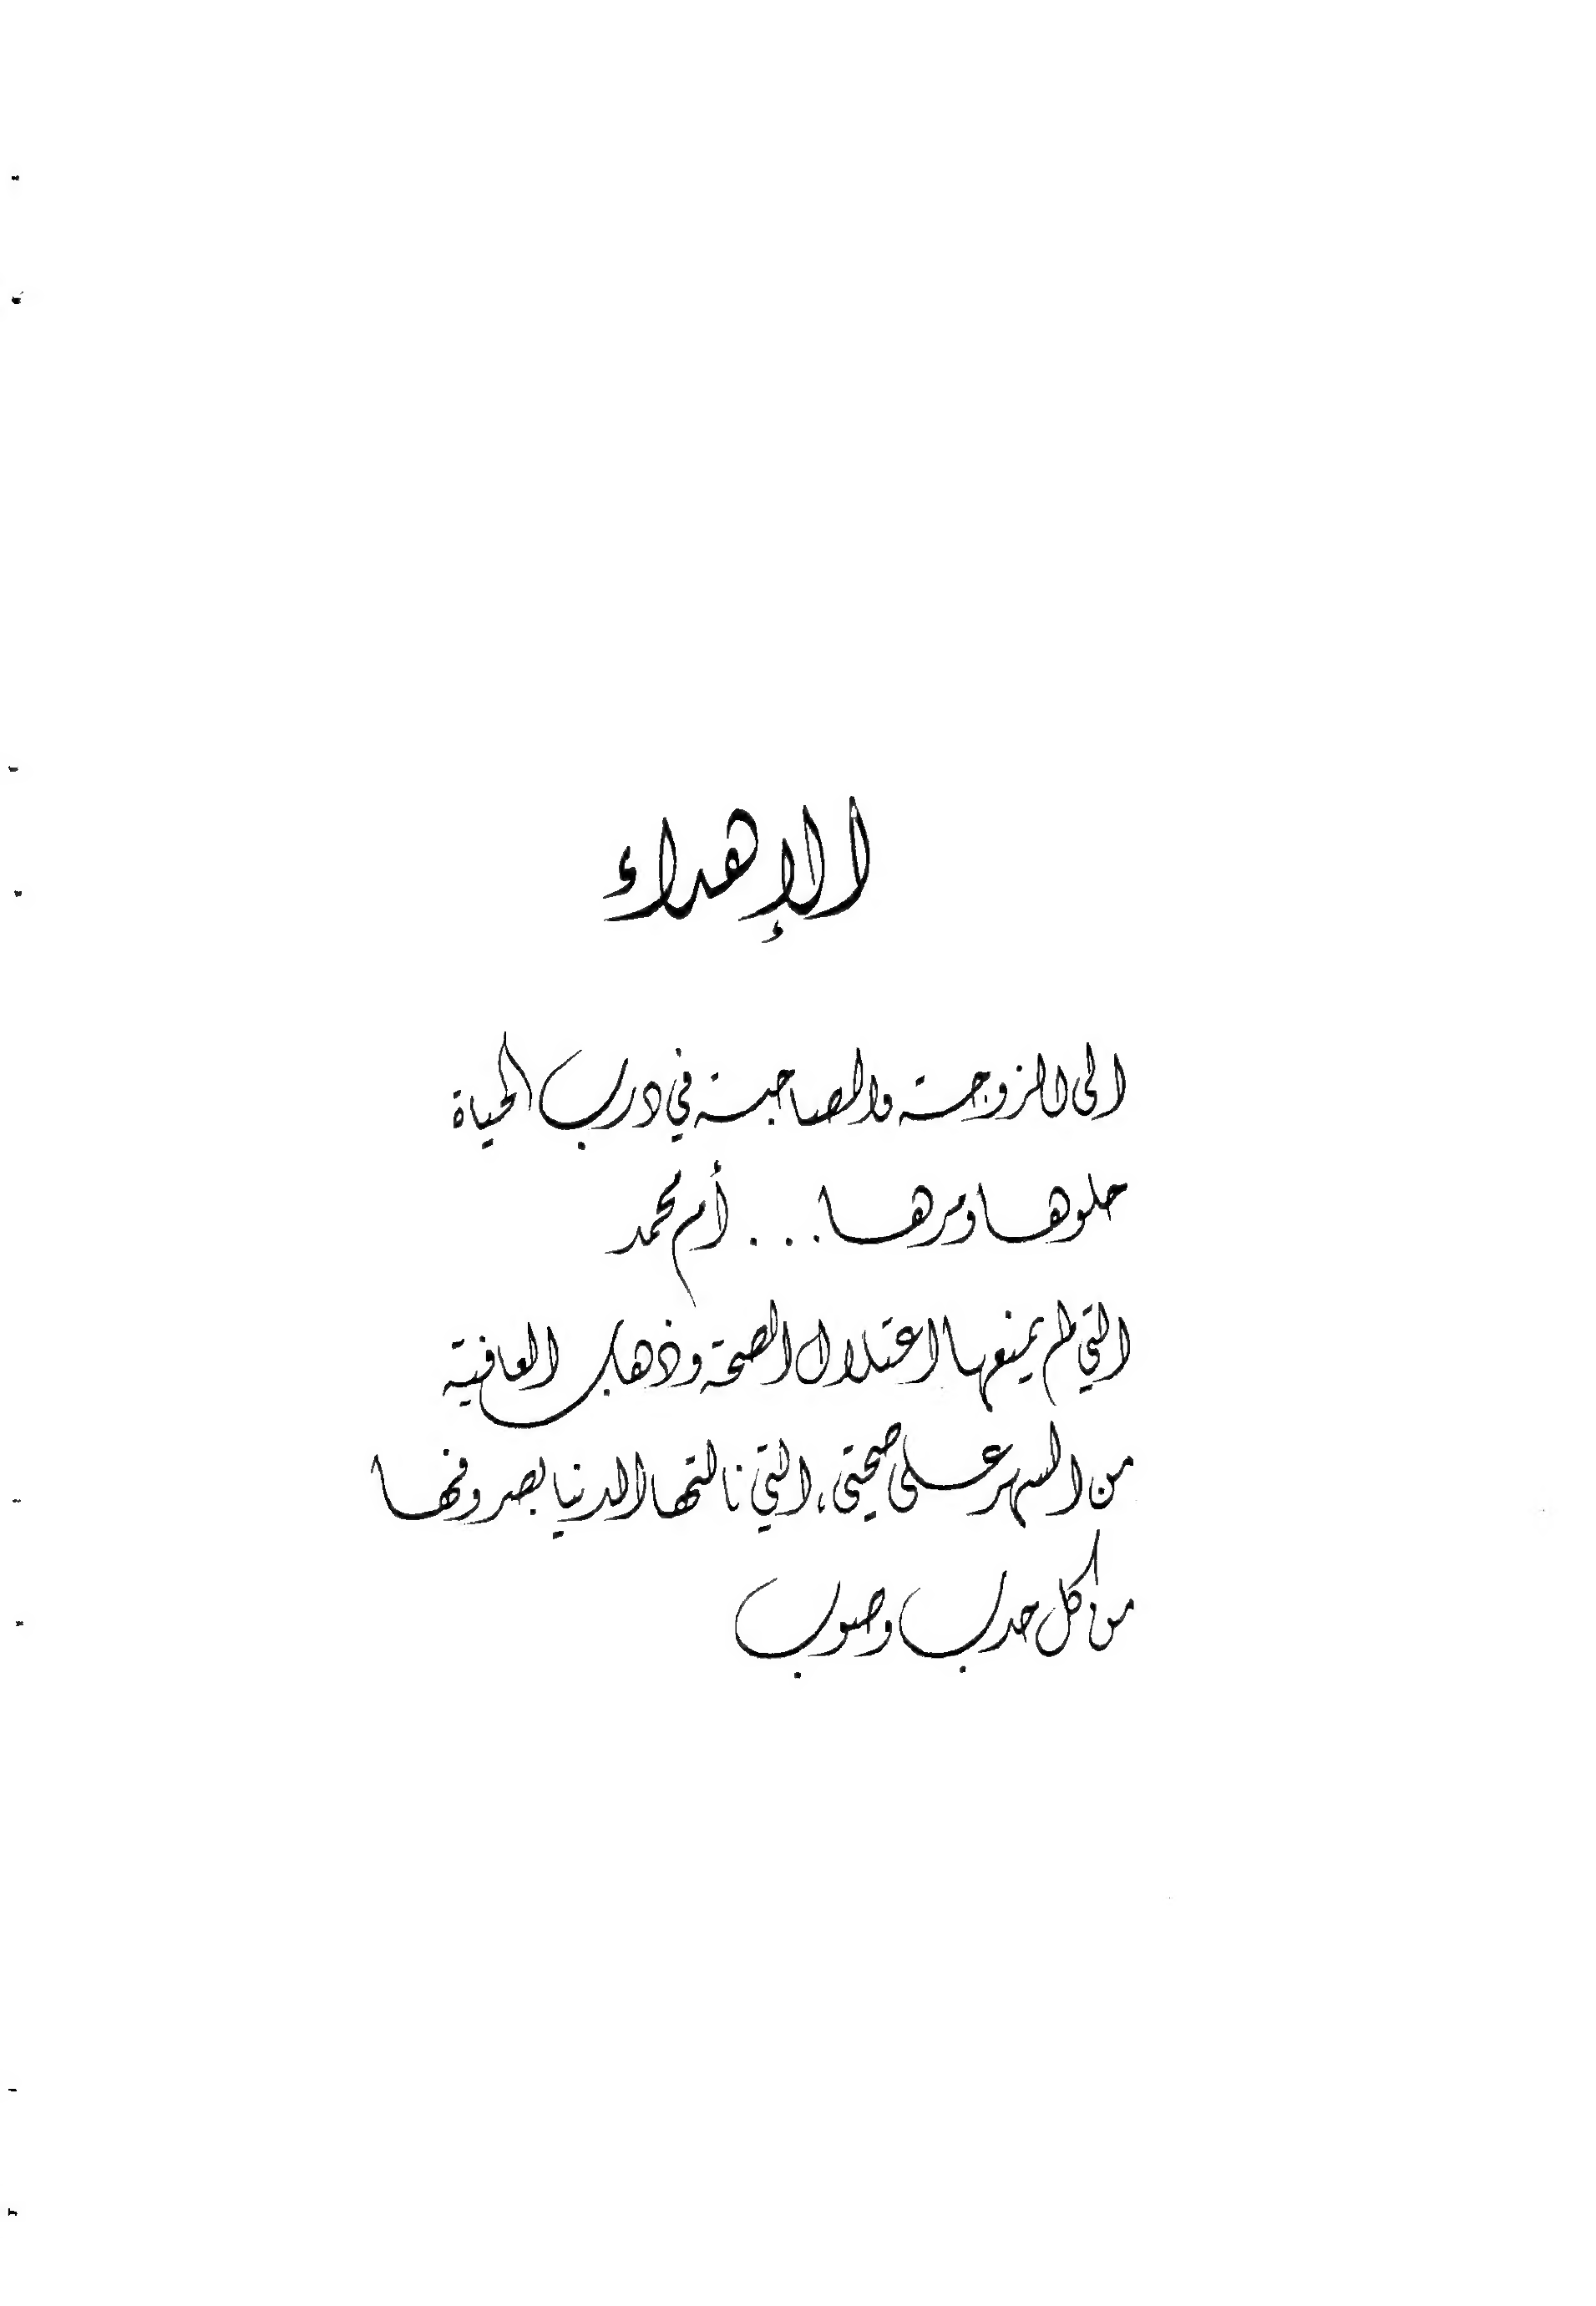 الإهداء
الى الزوجة والصاحبة في درب الحياة
حلوها ومرها . . . أم محمد
التي لم يمنعها اعتلال الصحة وذهاب العافية
من السهر على صحتي ، التي نالتها الدنيا بصروفها
من كل حدب وصوب